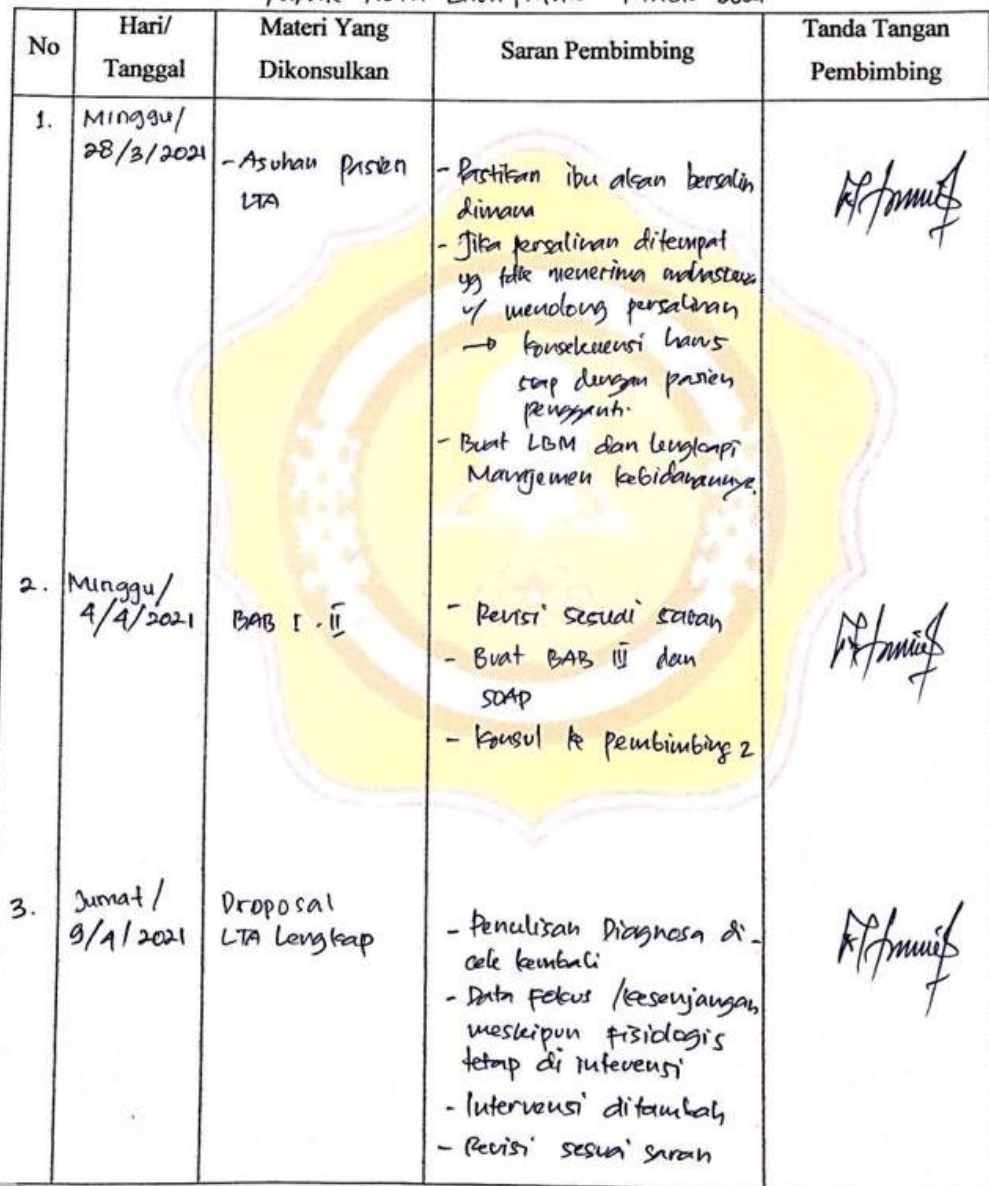 No
Hari/
Tanggal
Materi Yang
Dikonsulkan
Saran Pembimbing
Tanda Tangan
Pembimbing
1.
Minggu/
28/3/2021
- Asuhan Pasien
LTA
- Pastikan ibu akan bersalin
dimana
- Jika persalinan ditempat
yg tdk menerima mahasiswa
u/ menolong persalinan
→ konsekuensi harus
siap dengan pasien
pengganti.
- Buat LBM dan lengkapi
Manajemen kebidanannya.
2.
Minggu/
4/4/2021
BAB I . II
- Revisi sesuai saran
- Buat BAB III dan
SOAP
- Konsul ke pembimbing 2
3.
Jumat/
9/4/2021
Proposal
LTA Lengkap
- Penulisan Diagnosa di-
cek kembali
- Data Fokus /kesenjangan
meskipun fisiologis
tetap di intevensi
- Intervensi ditambah
- Revisi sesuai saran